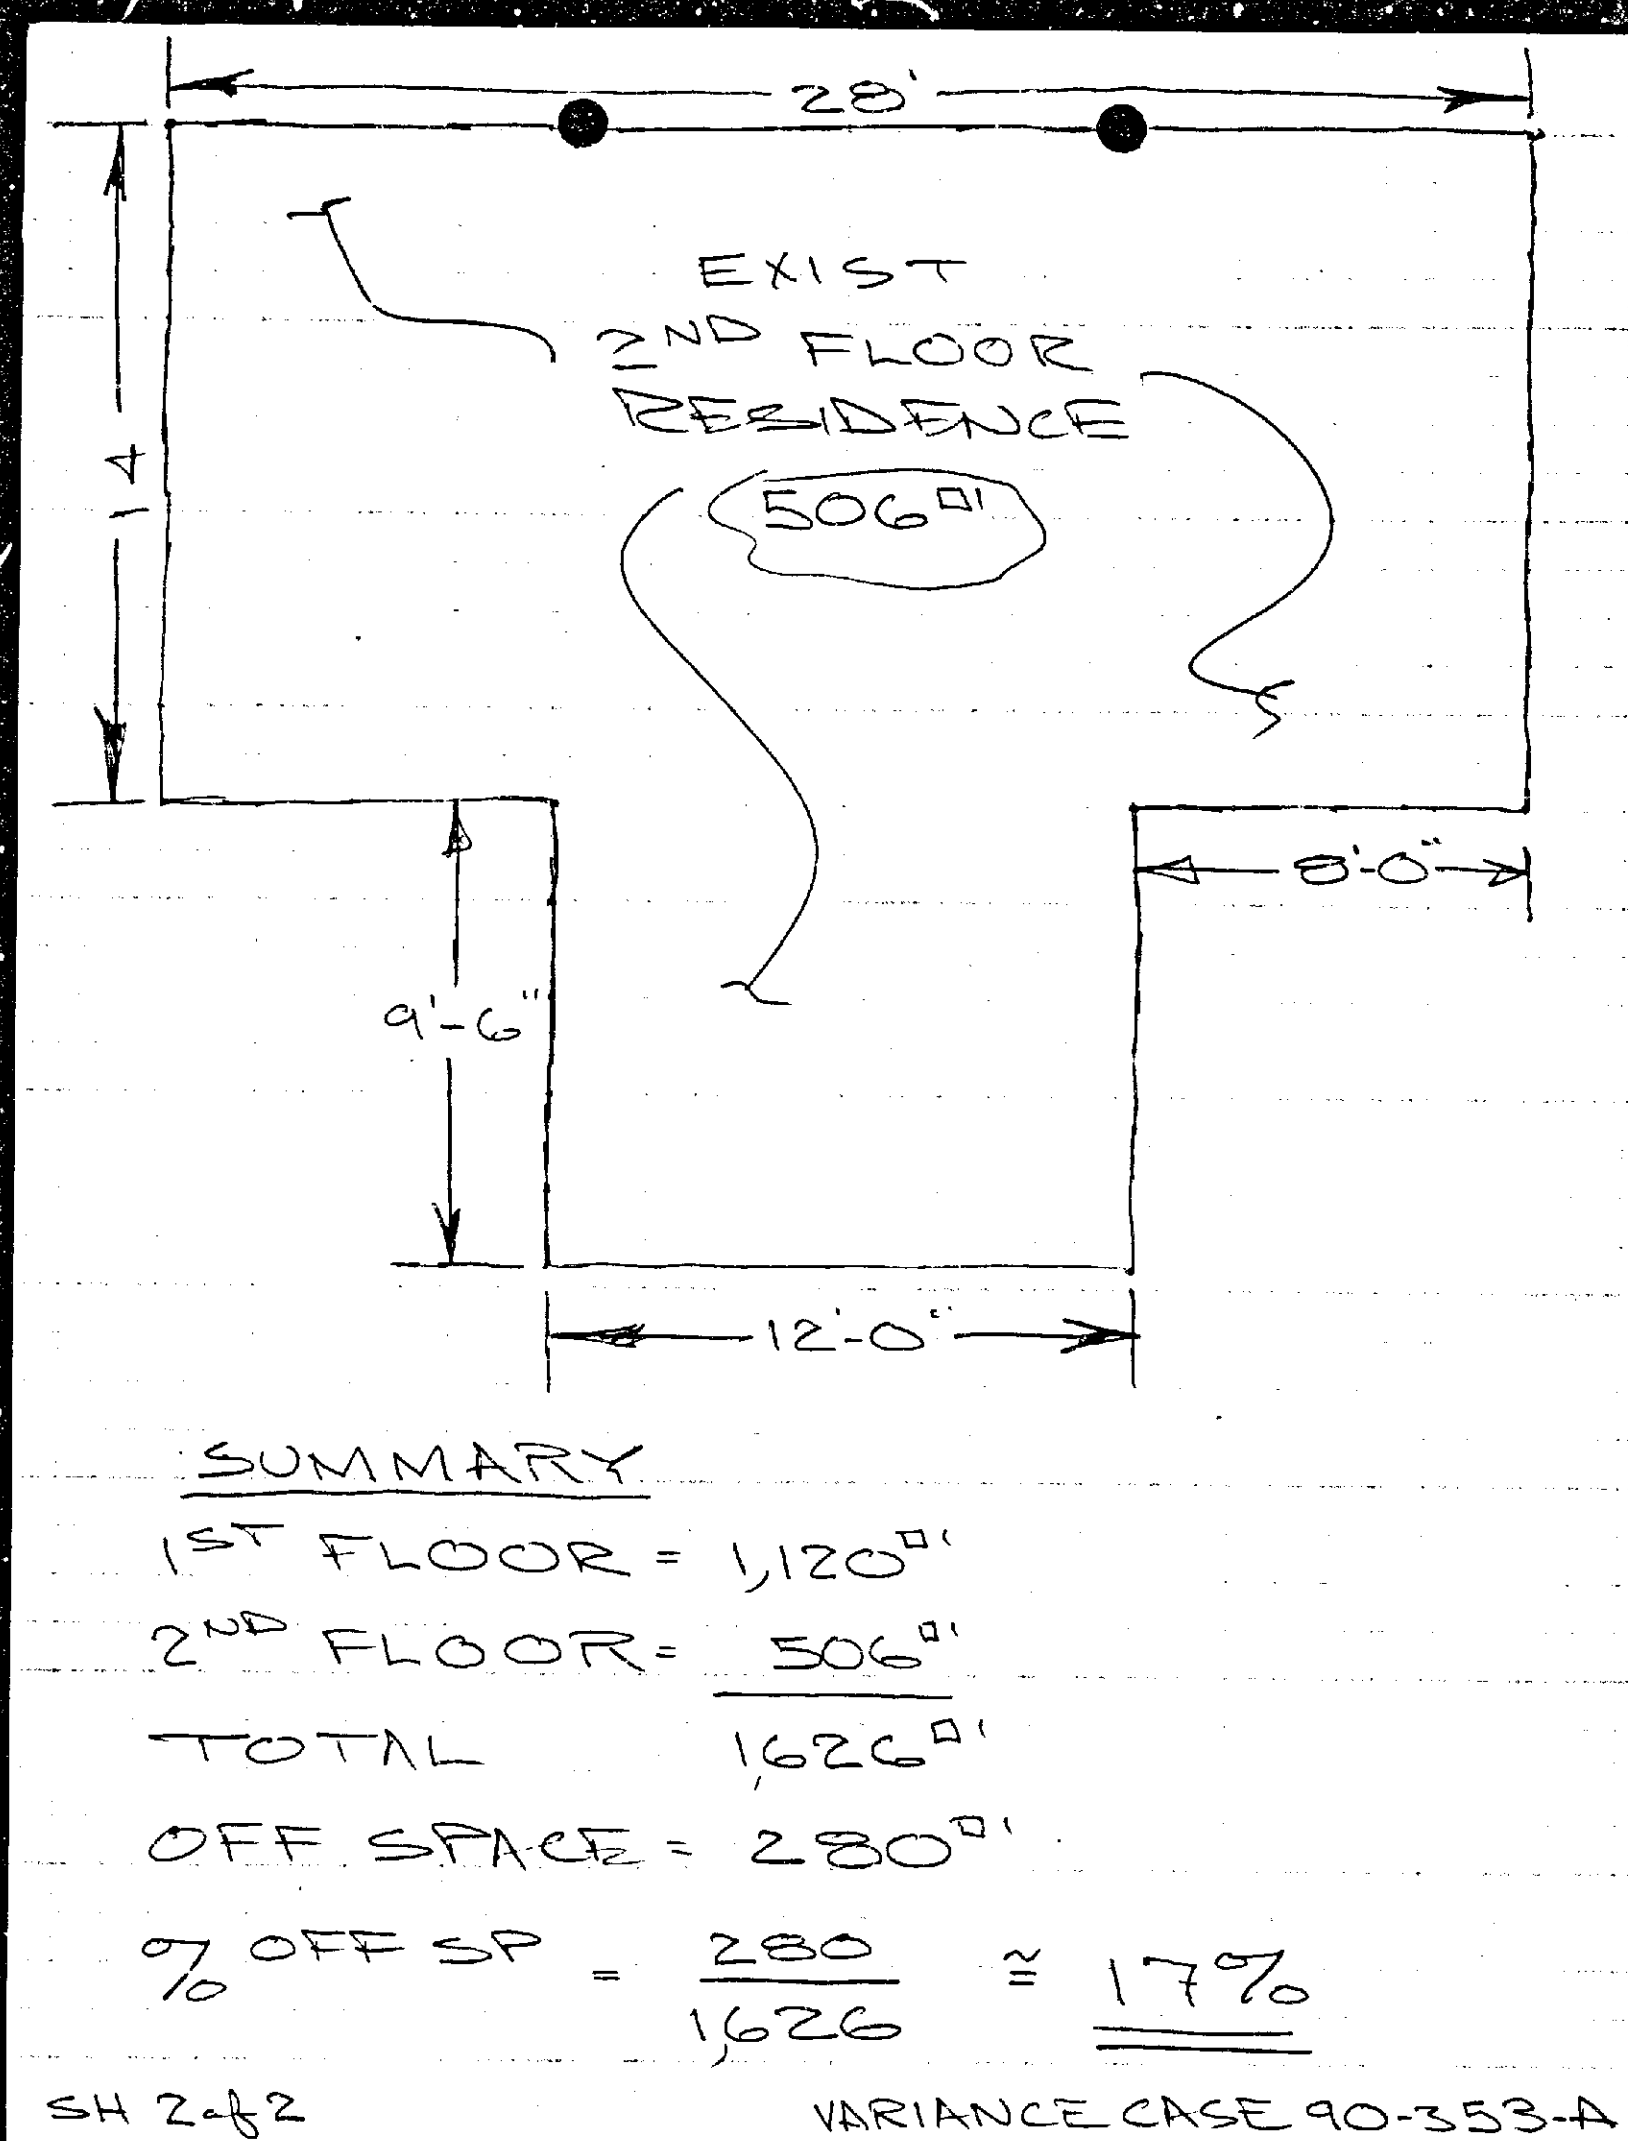 28'
EXIST
2ND FLOOR
RESIDENCE
506□'
14
8'-0"
9'-6"
12'-0"
SUMMARY
1ST FLOOR = 1,120□'
2ND FLOOR = 506□'
TOTAL 1,626□'
OFF SPACE = 280□'
% OFF SP = 280 / 1,626 ≅ 17%
SH 2 of 2
VARIANCE CASE 90-353-A